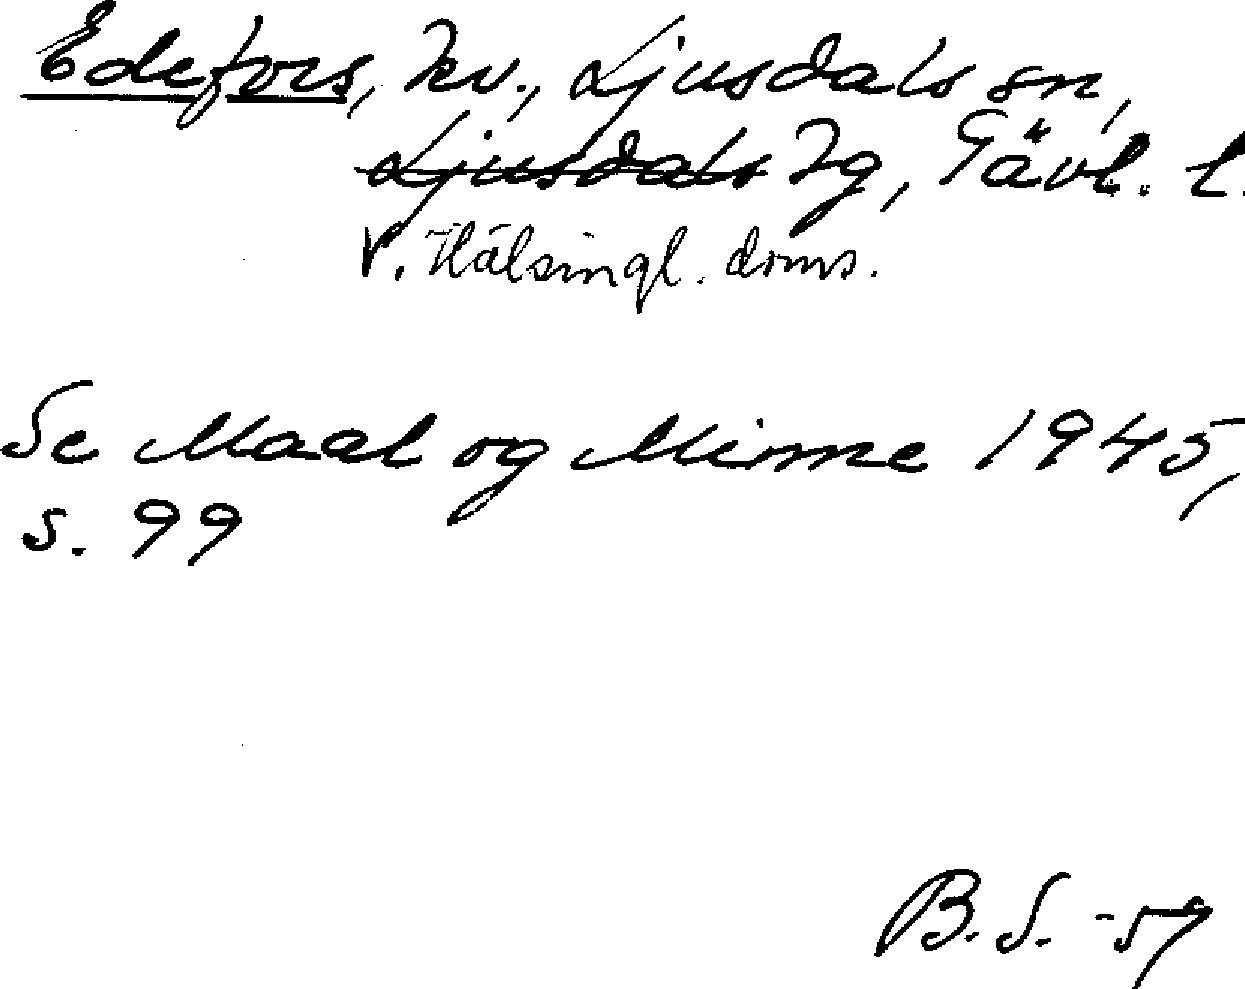 Edefors, kv., Ljusdals sn,
Ljusdals tg, Gävl. l.
V. Hälsingl. doms.
Se Maal og Minne 1945,
s. 99
B.S. -57